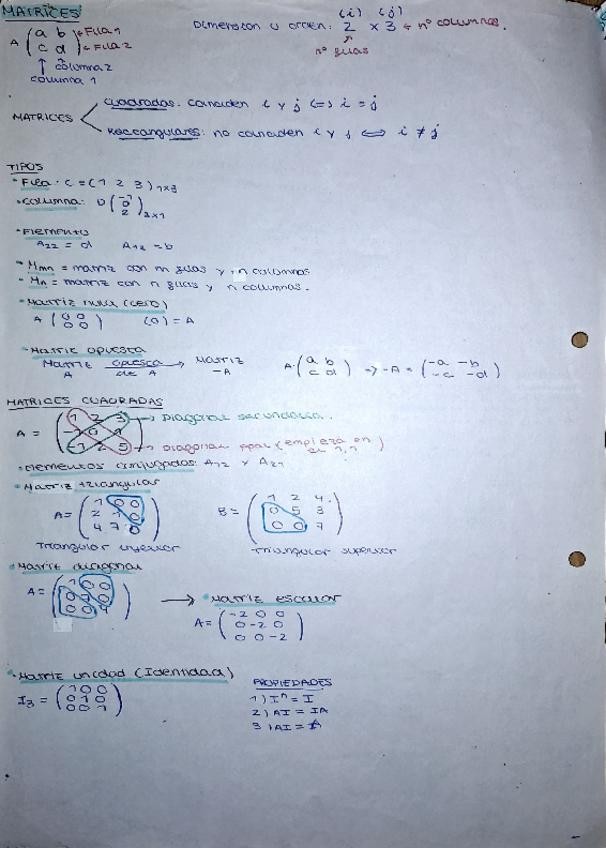 MATRICES
Dimension u orden: 2 x 3 → nº columnas.
(i) (j)
nº filas
A ( a b ) ← Fila 1
( c d ) ← Fila 2
columna 2
columna 1
MATRICES
cuadradas: coinciden i y j (=) i = j
Rectangulares: no coinciden i y j ⟺ i ≠ j
TIPOS
• Fila: C = (1 2 3) 1x3
• columna: D
• Elemento
A22 = d A12 = b
• Mmn = matriz con m filas y n columnas
• Mn = matriz con n filas y n columnas.
• Matriz nula (cero)
A ( 0 0 ) (0) = A
( 0 0 )
• Matriz opuesta
Matriz A opuesta de A → Matriz -A
A = ( a b ) => -A = ( -a -b )
( c d ) ( -c -d )
MATRICES CUADRADAS
A =
→ Diagonal secundaria.
→ Diagonal ppal (empieza en el 1,1)
• Elementos conjugados: A12 y A21
• Matriz triangular
A = ( 1 0 0 ) B = ( 1 2 4 )
( 2 1 0 ) ( 0 5 3 )
( 4 7 0 ) ( 0 0 7 )
Triangular inferior Triangular superior
• Matriz diagonal
A =
→ • Matriz escalar
A = ( -2 0 0 )
( 0 -2 0 )
( 0 0 -2 )
• Matriz unidad (Identidad)
I3 = ( 1 0 0 )
( 0 1 0 )
( 0 0 1 )
PROPIEDADES
1) Iⁿ = I
2) AI = IA
3) AI = A